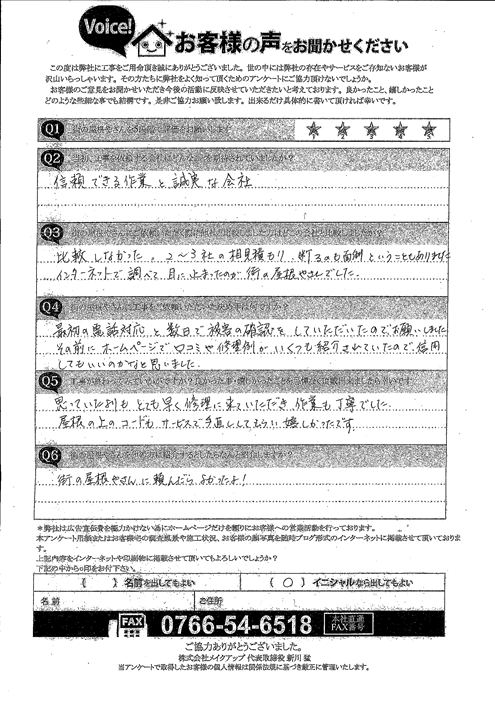 Voice!
お客様の声をお聞かせください
この度は弊社に工事をご用命頂き誠にありがとうございました。世の中には弊社の存在やサービスをご存知ないお客様が
沢山いらっしゃいます。その方たちに弊社をよく知って頂くためのアンケートにご協力頂けないでしょうか。
お客様のご意見をお聞かせいただき今後の活動に反映させていただきたいと考えております。良かったこと、嬉しかったこと
どのような些細な事でも結構です。是非ご協力お願い致します。出来るだけ具体的に書いて頂ければ幸いです。
Q1
1 2 3 4 5
Q2
信頼できる作業と誠実な会社
Q3
比較しなかった。2〜3社の相見積もり、するのも面倒ということもありました
インターネットで調べて目に止まったのが街の屋根やさんでした。
Q4
最初の電話対応と数日で被害の確認をしていただいたのでお願いしました
その前にホームページで口コミや修理例がいくつも紹介されていたので信用
してもいいのかなと思いました。
Q5
思っていたよりもとても早く修理に来ていただき作業も丁寧でした。
屋根の上のコードもサービスで手直ししてもらい嬉しかったです
Q6
街の屋根やさんに頼んだらよかったよ!
*弊社は広告宣伝費を極力かけない為にホームページだけを頼りにお客様への営業活動を行っております。
本アンケート用紙またはお客様宅の調査風景や施工状況、お客様の顔写真を随時ブログ形式のインターネットに掲載させて頂いております。
上記内容をインターネットや印刷物に掲載させて頂いてもよろしいでしょうか?
下記の中から○印をお付下さい。
( ) 名前を出してもよい
( ○ ) イニシャルなら出してもよい
名前
ご住所
FAX
0766-54-6518
本社直通
FAX番号
ご協力ありがとうございました。
株式会社メイクアップ 代表取締役 新川 猛
当アンケートで取得したお客様の個人情報は関係法規に基づき厳正に管理いたします。